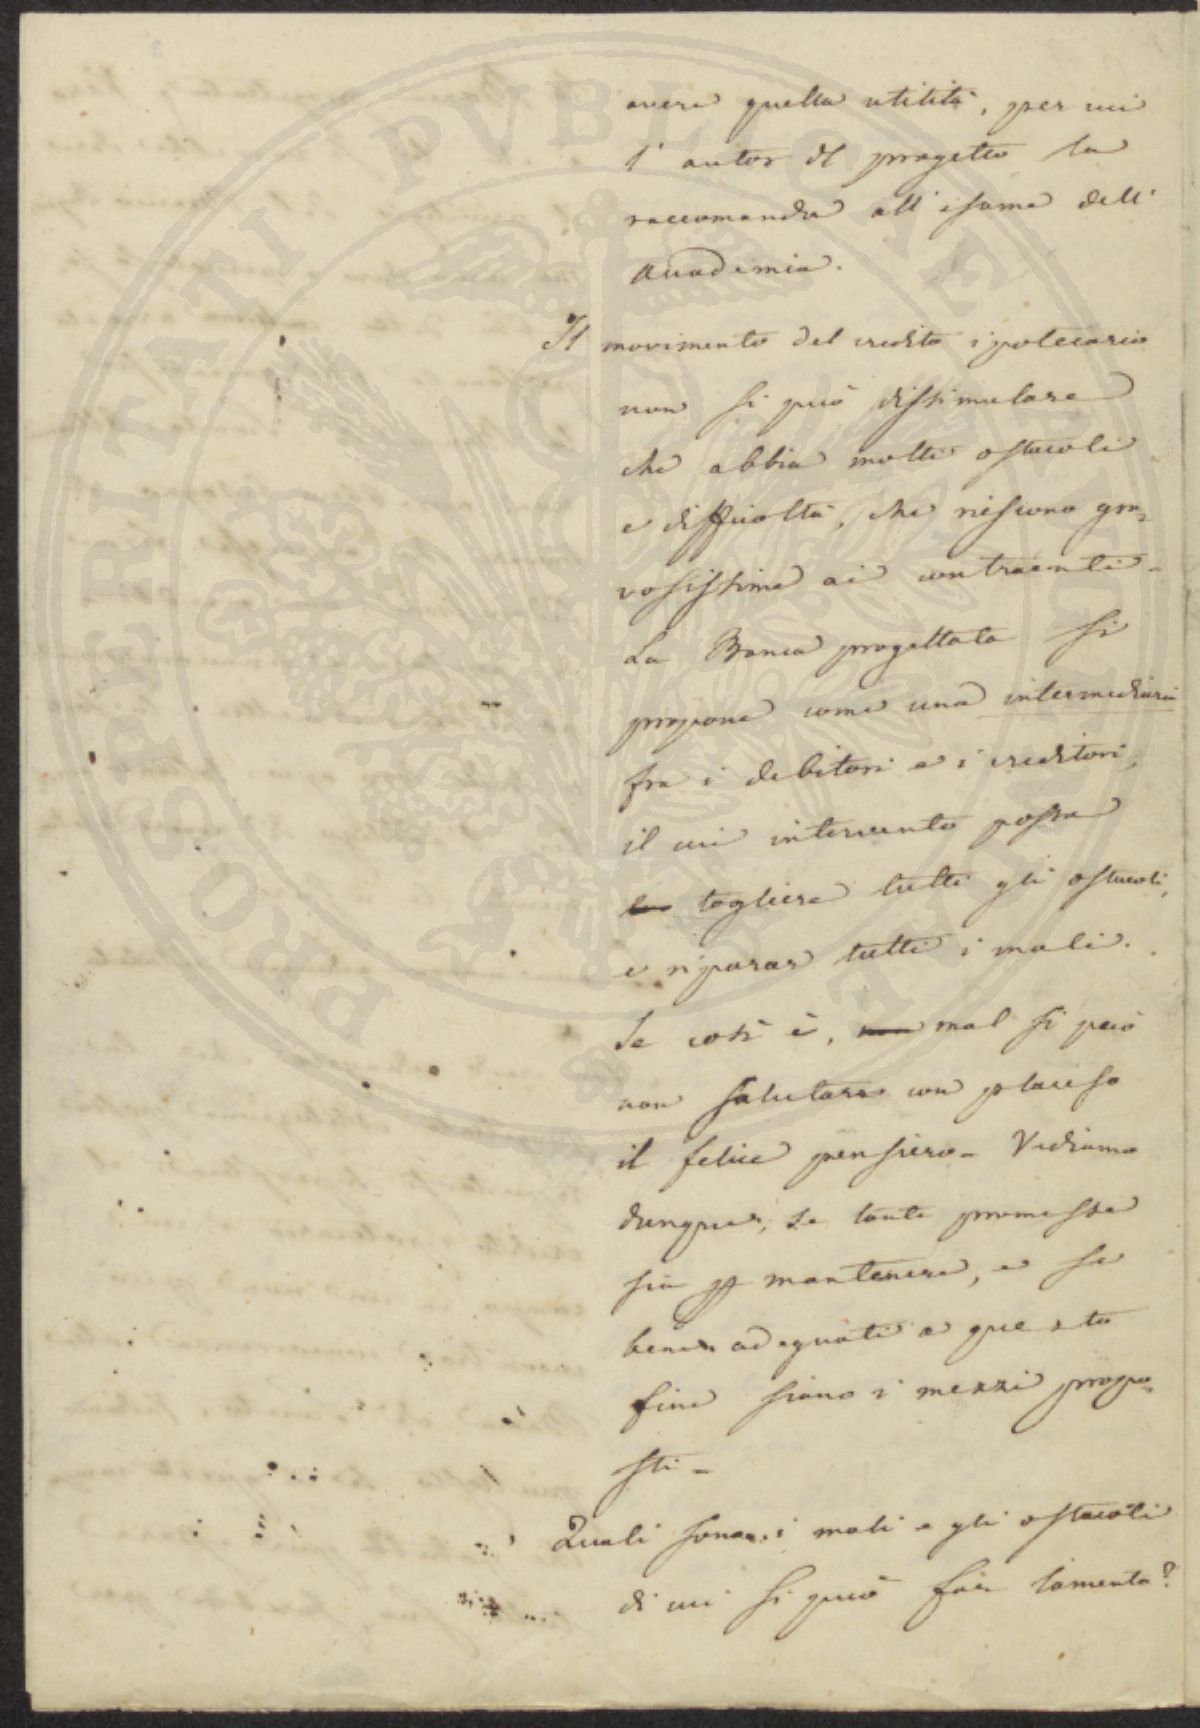 avere quella utilità, per cui
l'autor del progetto la
raccomanda all'esame dell'
Accademia.
Il movimento del credito ipotecario
non si può dissimulare
che abbia molti ostacoli
e difficoltà, che riescono gra-
vosissime ai contraenti-
La Banca progettata si
propone come una intermediaria
fra i debitori e i creditori,
il cui intervento possa
togliere tutti gli ostacoli,
e riparar tutti i mali.
Se così è, mal si può
non salutare con plauso
il felice pensiero- Vediamo
dunque, se tante promesse
sia per mantenere, e se
bene adeguati a questo
fine siano i mezzi propo-
sti-
Quali sono i mali e gli ostacoli
di cui si può far lamento?
PROSPERITATI PVBLICAE